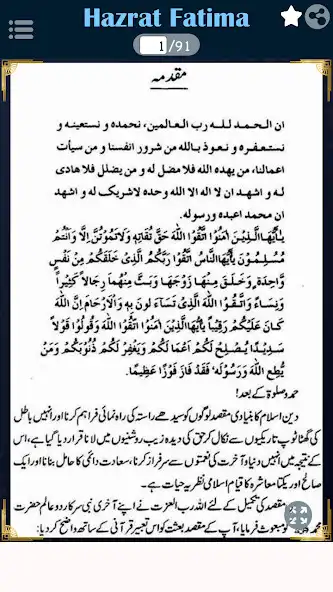 Hazrat Fatima
1/91
مقدمہ
ان الحمد للہ رب العالمین، نحمدہ و نستعینہ و
نستغفرہ و نعوذ باللہ من شرور انفسنا و من سیأت
اعمالنا، من یھدہ اللہ فلا مضل لہ و من یضلل فلا ھادی
لہ و اشھد ان لا الہ الا اللہ وحدہ لاشریک لہ و اشھد
ان محمد اعبدہ ورسولہ.
یٰۤاَیُّهَا الَّذِیْنَ اٰمَنُوا اتَّقُوا اللّٰهَ حَقَّ تُقَاتِهٖ وَلَاتَمُوْتُنَّ اِلَّا وَاَنْتُمْ
مُسْلِمُوْنَ یٰۤاَیُّهَا النَّاسُ اتَّقُوْا رَبَّكُمُ الَّذِیْ خَلَقَكُمْ مِنْ نَفْسٍ
وَّاحِدَةٍ وَّخَلَقَ مِنْهَا زَوْجَهَا وَبَثَّ مِنْهُمَا رِجَالًا كَثِیْرًا
وَّنِسَآءً وَاتَّقُوا اللّٰهَ الَّذِیْ تَسَآءَ لُوْنَ بِهٖ وَالْاَرْحَامَ اِنَّ اللّٰهَ
كَانَ عَلَیْكُمْ رَقِیْبًا یٰۤاَیُّهَا الَّذِیْنَ اٰمَنُوا اتَّقُوا اللّٰهَ وَقُوْلُوْا قَوْلًا
سَدِیْدًا یُّصْلِحْ لَكُمْ اَعْمَا لَكُمْ وَیَغْفِرْ لَكُمْ ذُنُوْبَكُمْ وَمَنْ
یُّطِعِ اللّٰهَ وَرَسُوْلَهٗ فَقَدْ فَازَ فَوْزًا عَظِیْمًا.
حمد وصلوٰۃ کے بعد!
دین اسلام کا بنیادی مقصد لوگوں کو سیدھے راستہ کی راہ نمائی فراہم کرنا اور انہیں باطل
کی گھٹا ٹوپ تاریکیوں سے نکال کر حق کی دیدہ زیب روشنیوں میں لانا قرار دیا گیا ہے، اس
کے نتیجہ میں انہیں دنیا و آخرت کی نعمتوں سے سرفراز کرنا، سعادت دائمی کا حامل بنانا اور ایک
صالح اور یکتا معاشرہ کا قیام اسلامی نظریہ حیات ہے۔
مقصد کی تکمیل کے لئے اللہ رب العزت نے اپنے آخری نبی سرکار دو عالم حضرت
مبعوث فرمایا، آپ کے مقصد بعثت کو اس تعبیر قرآنی کے ساتھ واضح کر دیا: